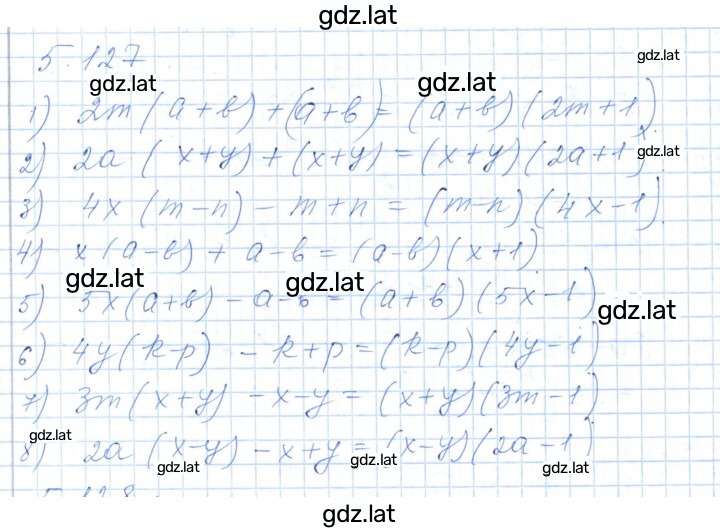 gdz.lat
5.127
gdz.lat
gdz.lat
gdz.lat
1) 2m(a+в)+(a+в)=(a+в)(2m+1).
2) 2a(x+y)+(x+y)=(x+y)(2a+1).
gdz.lat
3) 4x(m-n)-m+n=(m-n)(4x-1).
4) x(a-в)+a-в=(a-в)(x+1)
gdz.lat
gdz.lat
5) 5x(a+в)-a-в=(a+в)(5x-1)
gdz.lat
6) 4y(k-p)-k+p=(k-p)(4y-1)
7) 3m(x+y)-x-y=(x+y)(3m-1)
gdz.lat
8) 2a(x-y)-x+y=(x-y)(2a-1)
gdz.lat
gdz.lat
gdz.lat
gdz.lat